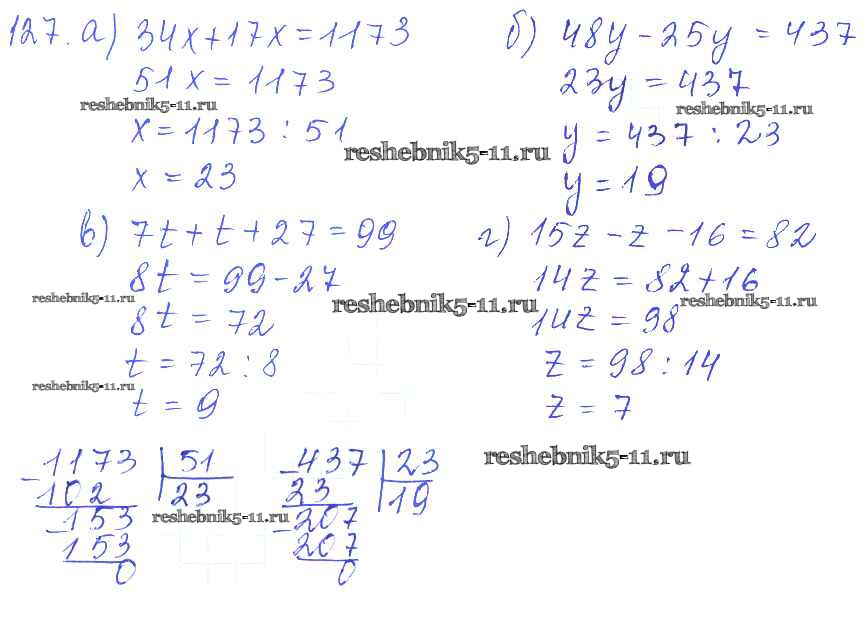 127. а) 34x+17x=1173
51x=1173
reshebnik5-11.ru
x=1173:51
reshebnik5-11.ru
x=23
б) 48y-25y=437
23y=437
reshebnik5-11.ru
y=437:23
y=19
в) 7t+t+27=99
8t=99-27
reshebnik5-11.ru
reshebnik5-11.ru
8t=72
t=72:8
reshebnik5-11.ru
t=9
г) 15z-z-16=82
14z=82+16
reshebnik5-11.ru
14z=98
z=98:14
z=7
-1173 |51
102 |23
reshebnik5-11.ru
-153
153
0
-437 |23
23 |19
-207
207
0
reshebnik5-11.ru